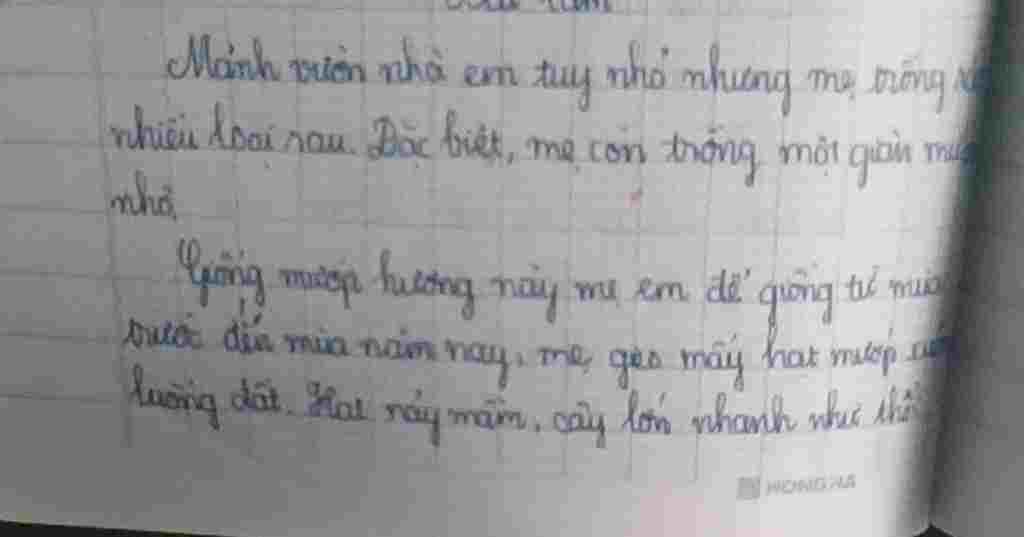 Mảnh vườn nhà em tuy nhỏ nhưng mẹ trồng
nhiều loại rau. Đặc biệt, mẹ còn trồng một giàn
nhỏ.
Giống mướp hương này mẹ em để giống từ mùa
trước đến mùa năm nay, mẹ gieo mấy hạt mướp
luống đất. Hạt nảy mầm, cây lớn nhanh như
HONG HA